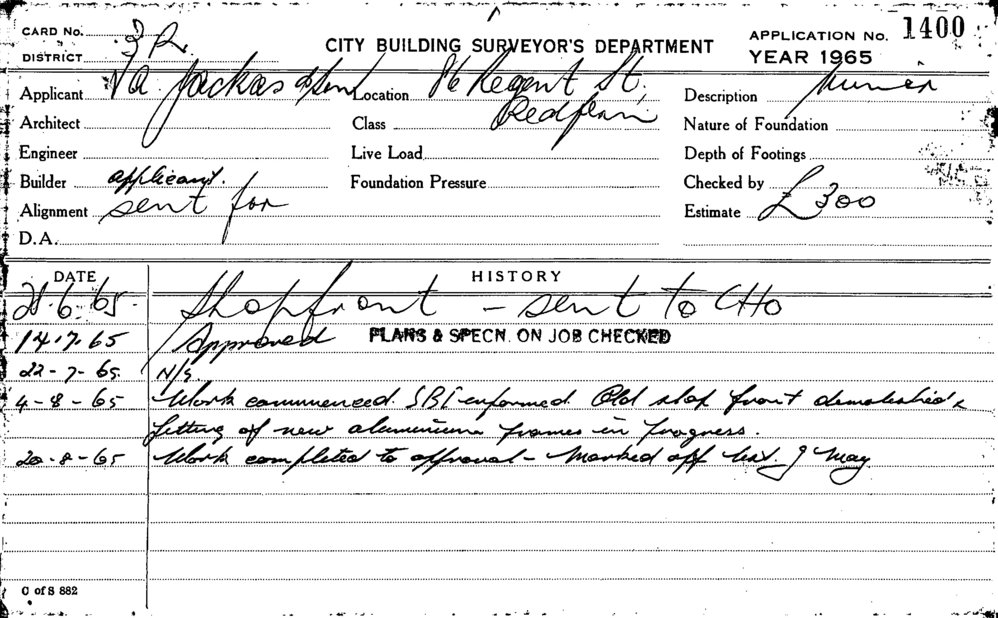 CARD No.
DISTRICT
CITY BUILDING SURVEYOR'S DEPARTMENT
APPLICATION No. 1400
YEAR 1965
Applicant
Location 86 Regent St,
Redfern
Description Minor
Architect
Class
Nature of Foundation
Engineer
Live Load
Depth of Footings
Builder applicant.
Foundation Pressure
Checked by
Alignment sent for
Estimate £300
D.A.
DATE HISTORY
6. 65. Shopfront - sent to CHO
14.7.65 Approved PLANS & SPECN. ON JOB CHECKED
22-7-65. N/S
4-8-65 Work commenced. SBI informed Old shop front demolished &
fitting of new aluminium frames in progress.
20-8-65 Work completed to approval - Marked off May
C of S 882